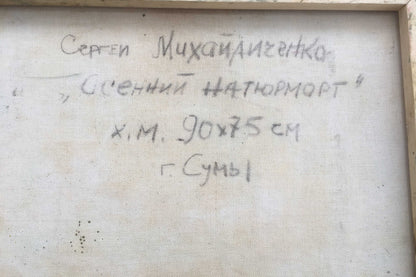 Сергей Михайличенко
„Осенний натюрморт"
х.м. 90х75 см
г. Сумы